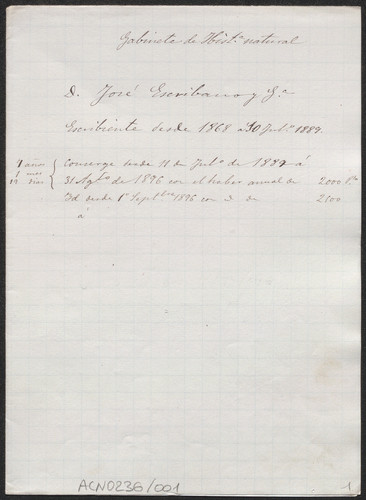 Gabinete de Hist.ª natural
D. José Escribano y G.ª
Escribiente desde 1868 a 30 Jul.º 1889.
7 años
1 mes
19 días
Conserge desde 11 de Jul.º de 1889 á
31 Agto de 1896 con el haber anual de 2000 Ptas
Id desde 1º Septbre 1896 con id de 2500
á
ACN0236/001
1